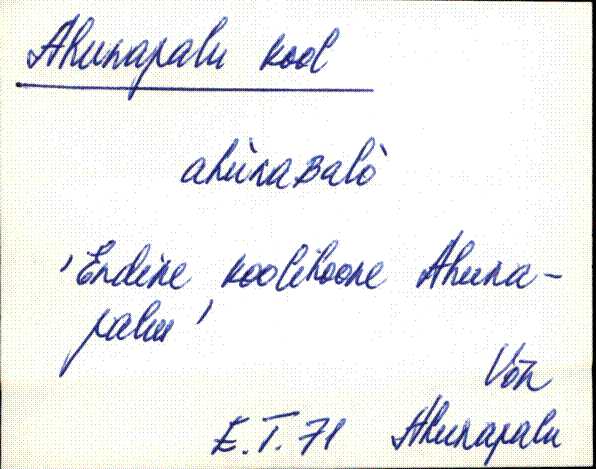 Ahunapalu kool
ahùnaʙalò
'Endine koolihoone Ahuna-
palu'
Võn
E.T. 71 Ahunapalu